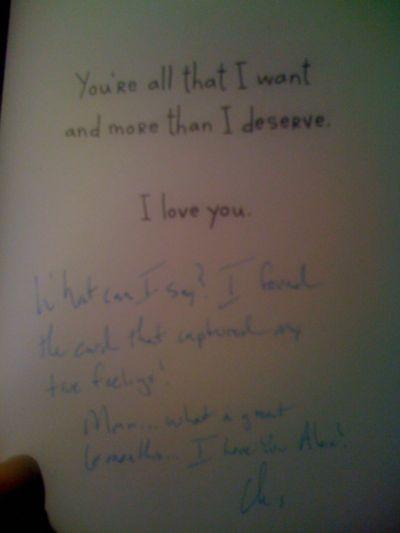 You're all that I want
and more than I deserve.
I love you.
What can I say? I found
the card that captured my
true feelings!
Mmm... what a great
6 months... I Love You Alex!